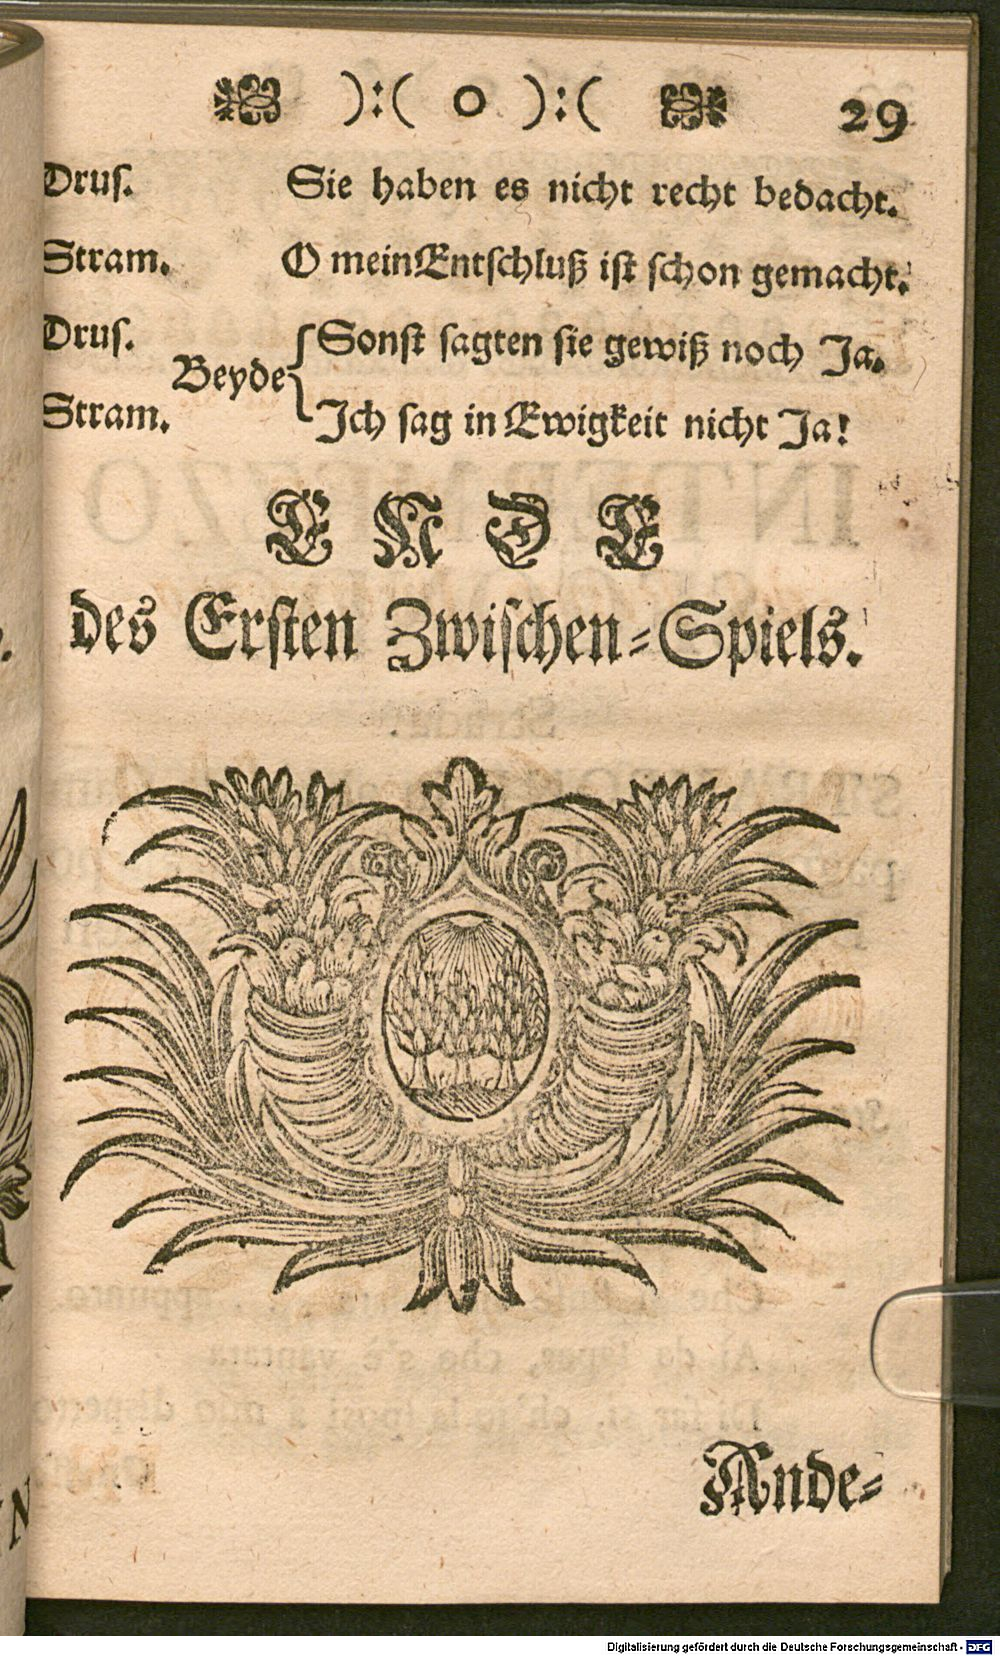 ):( o ):( 29
Drus. Sie haben es nicht recht bedacht.
Stram. O mein Entschluß ist schon gemacht.
Drus. Sonst sagten sie gewiß noch Ja.
Beyde
Stram. Ich sag in Ewigkeit nicht Ja!
ENDE
des Ersten Zwischen-Spiels.
Ande-
Digitalisierung gefördert durch die Deutsche Forschungsgemeinschaft - DFG